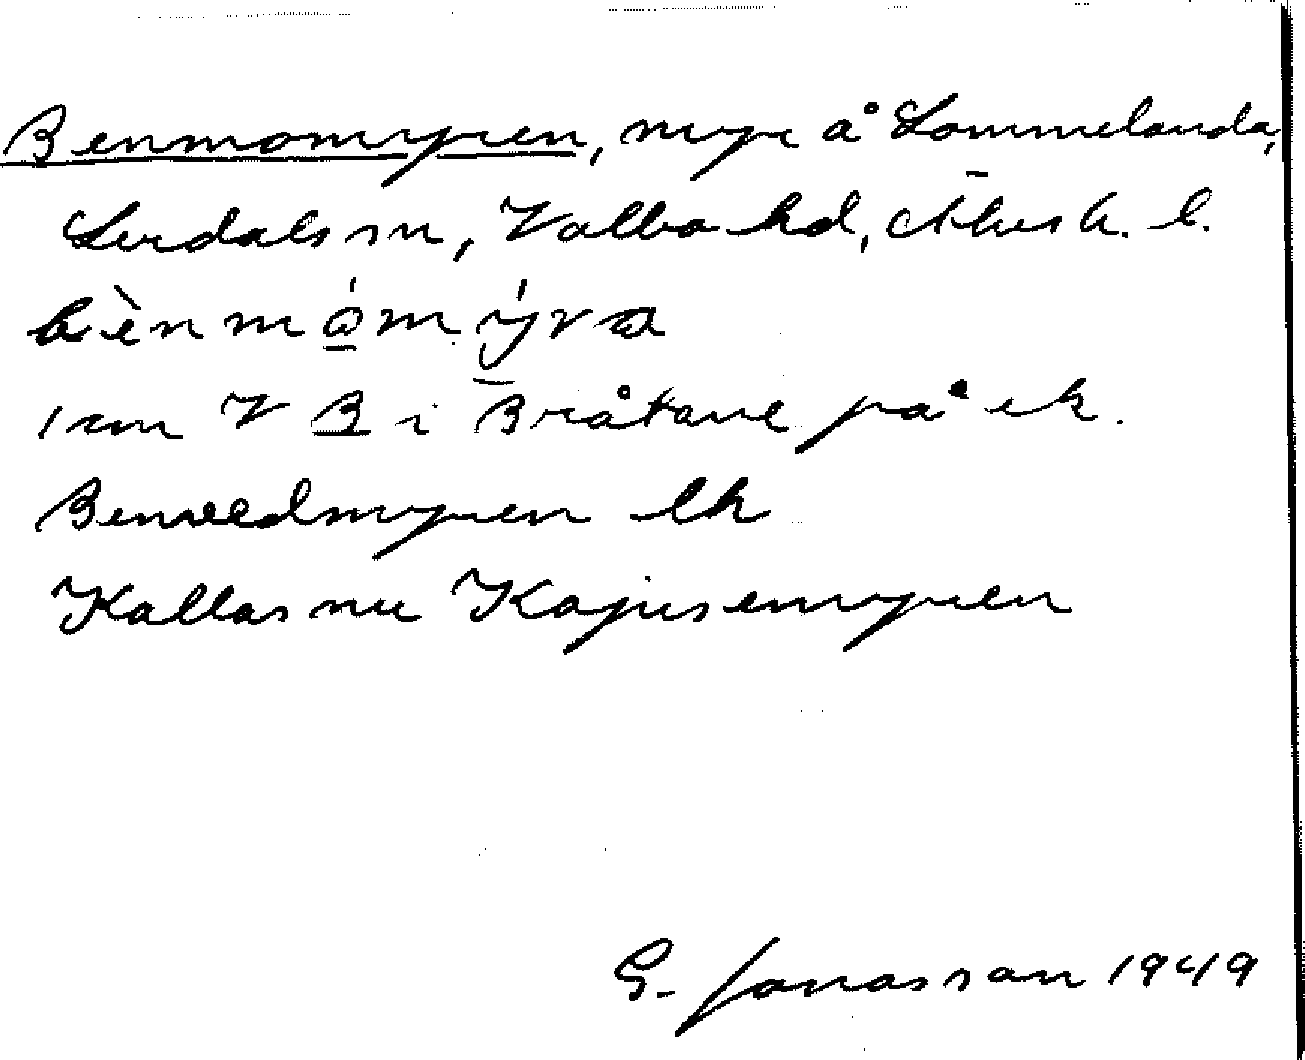 Benmomyren, myr å Lommelanda,
Lerdals sn, Valbo hd, Älvsb. l.
bènmòmýra
1 cm V B i Bråtane på ek.
Benvedmyren lk
Kallas nu Kajusemyren
G. Jonasson 1949